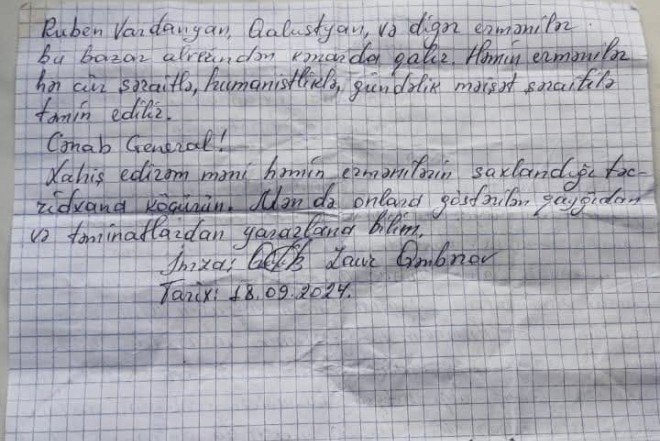 Ruben Vardanyan, Qalustyan, və digər ermənilər
bu bazar alverindən kənarda qalır. Həmin ermənilər
hər cür şəraitlə, humanistliklə, gündəlik məişət şəraitilə
təmin edilir.
Cənab General!
Xahiş edirəm məni həmin ermənilərin saxlandığı təc-
ridxana köçürün. Mən də onlara göstərilən qayğıdan
və təminatlardan yararlana bilim.
İmza: Zaur
Tarix: 18.09.2024.